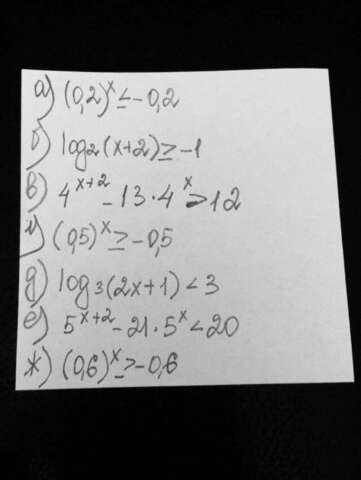 а) (0,2)^x ≤ -0,2
б) log₂(x+2) ≥ -1
в) 4^(x+2) - 13·4^x > 12
г) (0,5)^x ≥ -0,5
д) log₃(2x+1) < 3
е) 5^(x+2) - 21·5^x < 20
ж) (0,6)^x ≥ -0,6